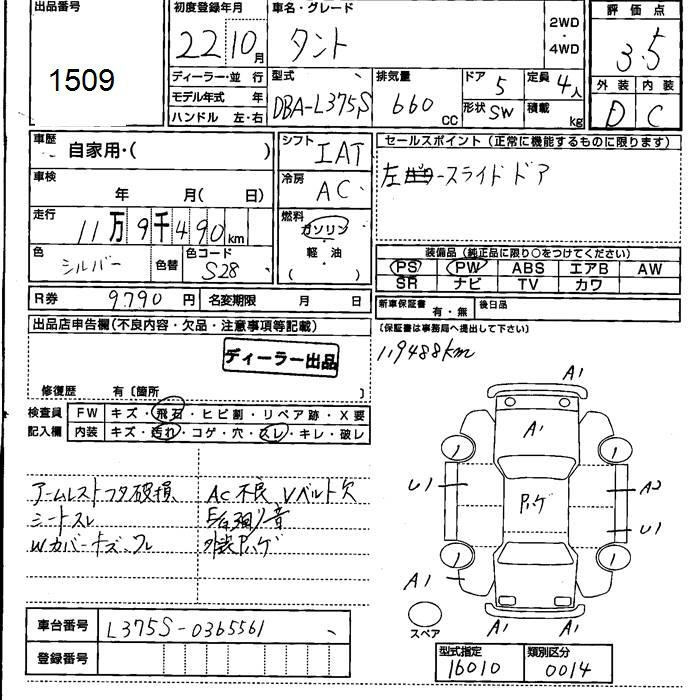 出品番号
1509
初度登録年月
22 10月
車名・グレード
タント
2WD
・
4WD
評価点
3.5
外装 内装
D C
ディーラー・並行
モデル年式 年
ハンドル 左・右
型式
DBA-L375S
排気量
660 cc
ドア 5
形状 SW
定員 4人
積載 kg
車歴
自家用・( )
車検
年 月( 日)
走行
11万9千490km
色
シルバー
色替
色コード
S28
シフト
IAT
冷房
AC
燃料
ガソリン
・
軽油
( )
セールスポイント(正常に機能するものに限ります)
左 スライドドア
装備品(純正品に限り○をつけてください)
PS PW ABS エアB AW
SR ナビ TV カワ
R券 9790円 名変期限 月 日
新車保証書 有・無 後日品
(保証書は事務局へ提出して下さい)
119488km
出品店申告欄(不良内容・欠品・注意事項等記載)
ディーラー出品
修復歴 有〔箇所 〕
検査員
記入欄
FW キズ・飛石・ヒビ割・リペア跡・X要
内装 キズ・汚れ・コゲ・穴・スレ・キレ・破レ
アームレストフタ破損 AC不良 Vベルト欠
シートスレ
Wカバーキズ、ワレ 外装Pハゲ
A1
A1
1 1
U1 Pハゲ A2
U1
1 1
A1
スペア
A1 A1
車台番号 L375S-0365561
登録番号
型式指定 類別区分
16010 0014